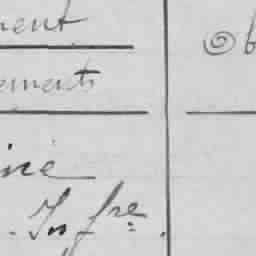 ment
Ob
ements
ine
. Inf^re.